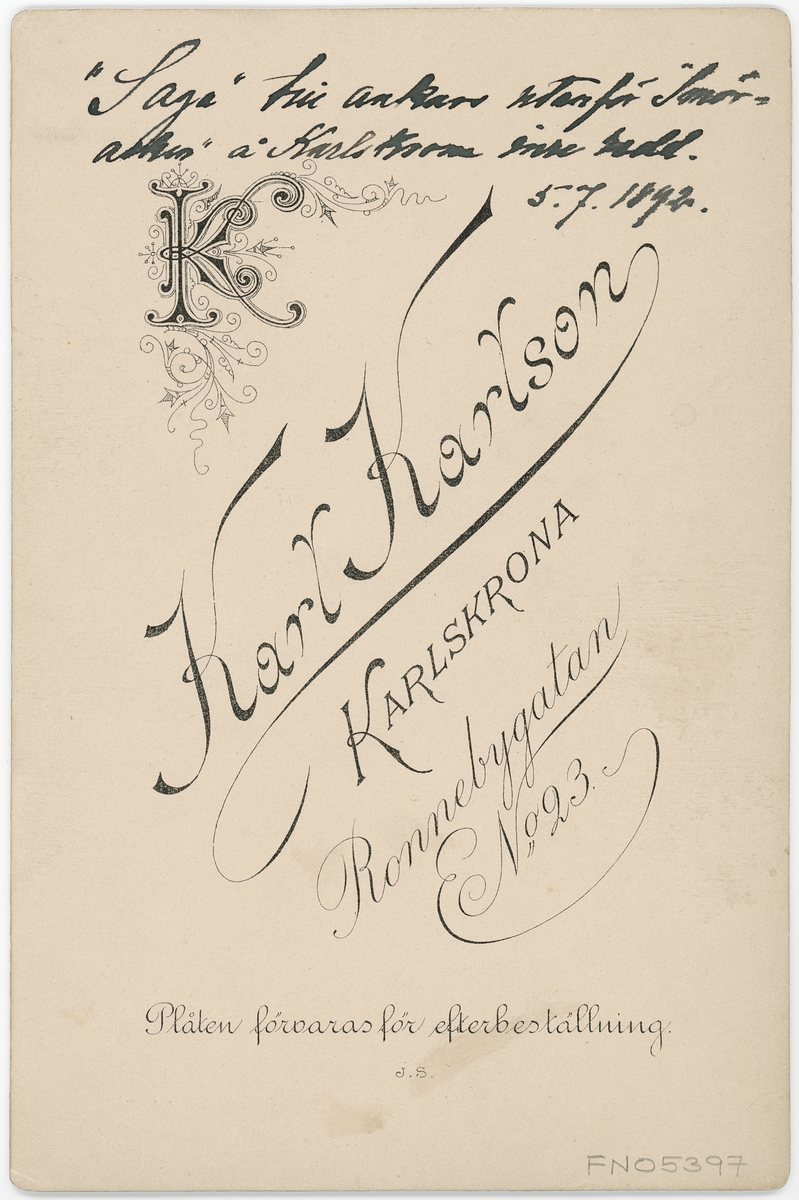 "Saga" till ankars utanför "Smör-
asken" å Karlskrona inre redd.
5.7.1892.
K
Karl Karlson
KARLSKRONA
Ronnebygatan
No 23.
Plåten förvaras för efterbeställning.
J.S.
FNO5397